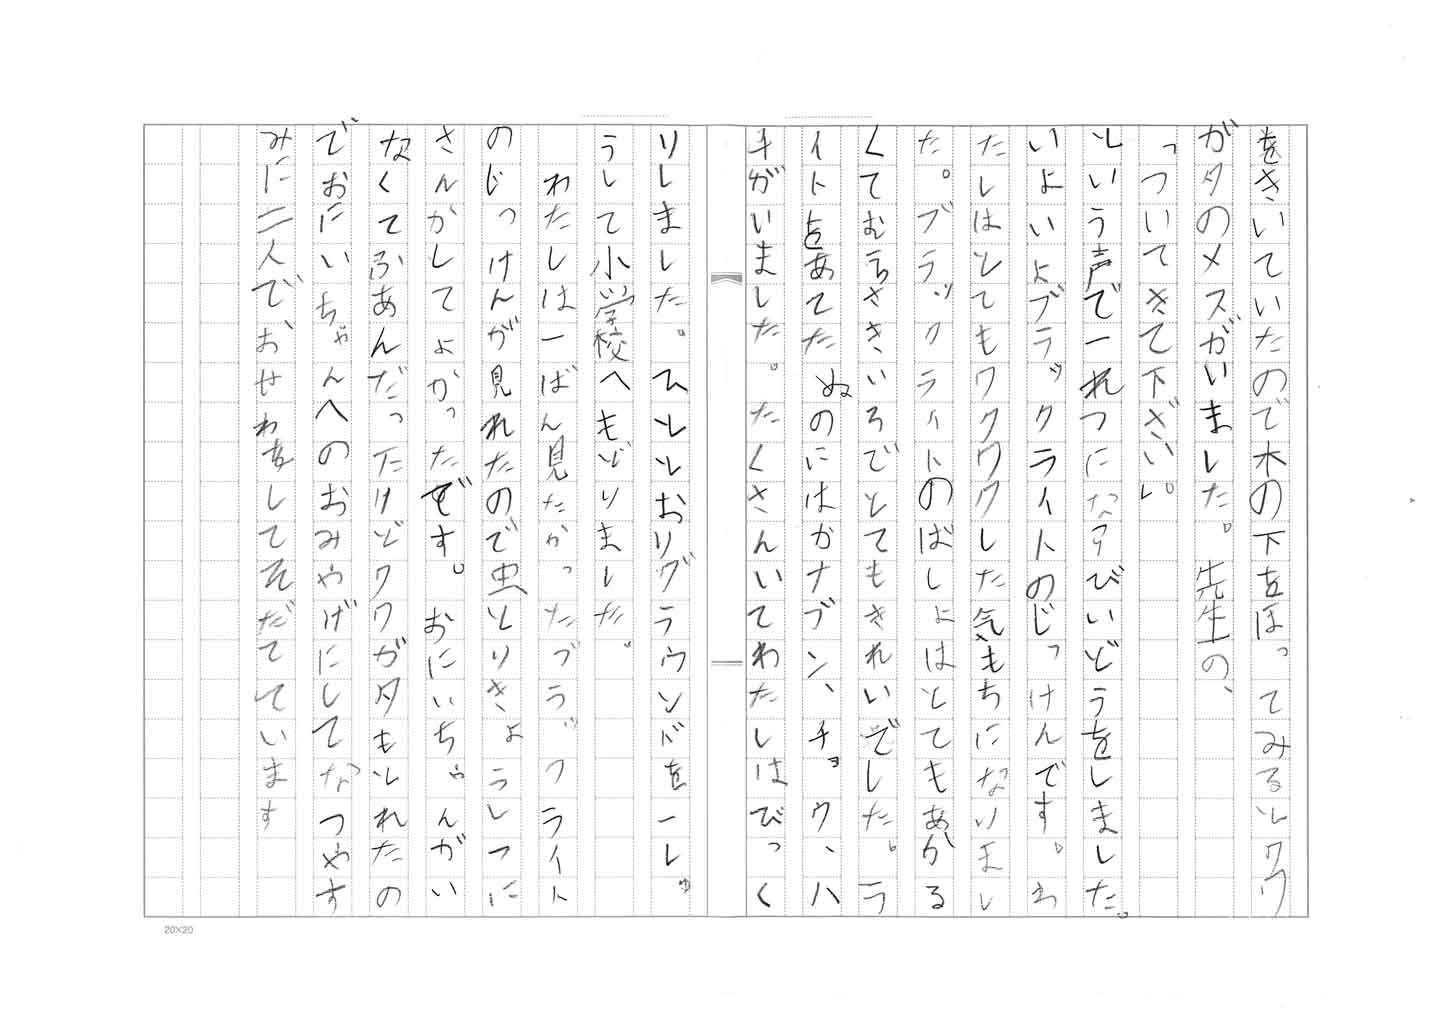 をきいていたので木の下をほってみるとクワ
ガタのメスがいました。先生の、
「ついてきて下さい。」
という声で一れつになアびいどうをしました。
いよいよブラックライトのじっけんです。わ
たしはとてもワクワクした気もちになりまし
た。ブラックライトのばしょはとてもあかる
くてむらさきいろでとてもきれいでした。ラ
イトをあてたぬのにはカナブン、チョウ、ハ
チがいました。たくさんいてわたしはびっく
りしました。ひととおりグラウンドを一しゅ
うして小学校へもどりました。
わたしは一ばん見たかったブラックライト
のじっけんが見れたので虫とりきょうしつに
さんかしてよかったです。おにいちゃんがい
なくてふあんだったけどクワガタもとれたの
でおにいちゃんへのおみやげにしてなつやす
みに二人でおせわをしてそだてています
20×20